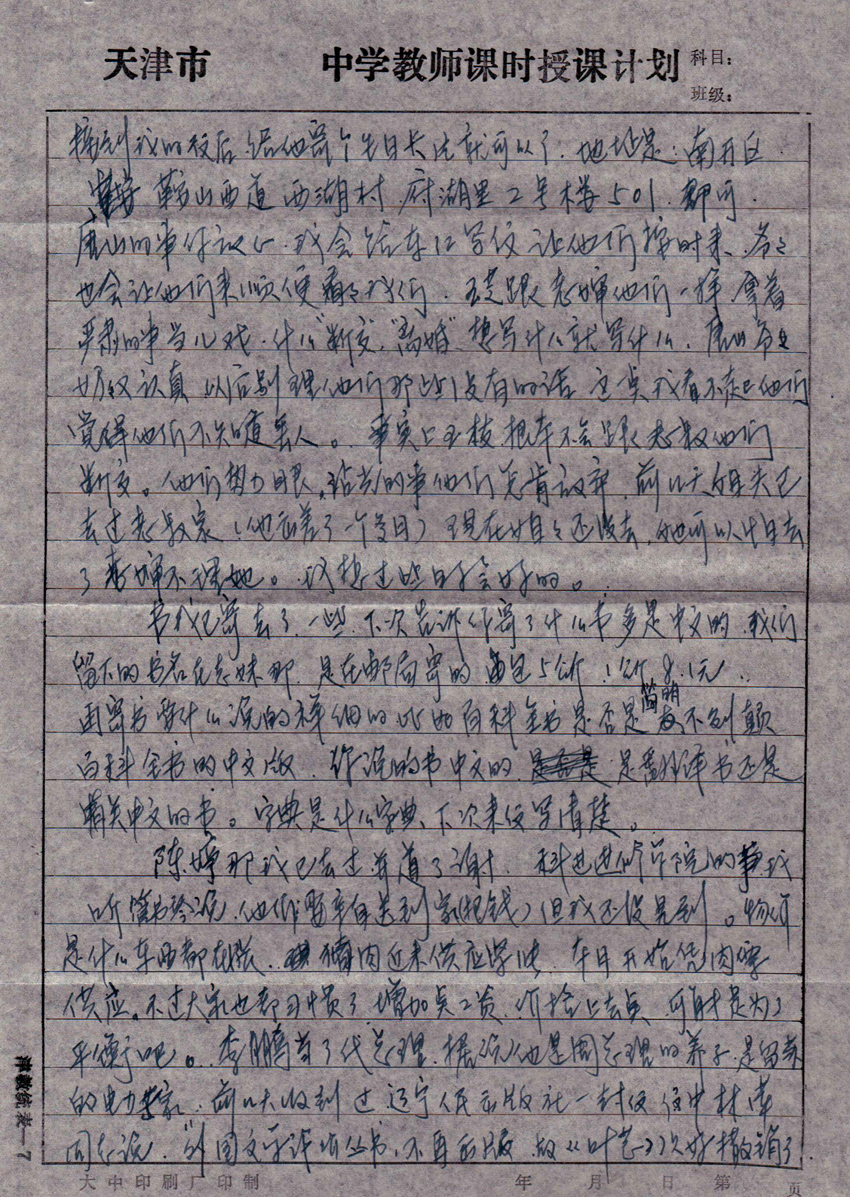 天津市 中学教师课时授课计划 科目:
班级:
接到我的信后给他寄个生日卡片就可以了.地址是:南开区
鞍山西道西湖村府湖里2号楼501.都可.
唐山的事你放心.我会给东江写信让他们按时来、爷爷
也会让他们来顺便看看我们.王芝跟老婶他们一样拿着
严肃的事当儿戏.什么"断交""离婚"想写什么就写什么.唐山爷爷
奶奶认真.以后别理他们那些没有的话.这点我看不起他们
觉得他们不知道丢人。事实上玉枝根本不会跟老叔他们
断交。他们势力眼.前几天姐夫已
去过老叔家(他出差了一个多月)现在姐姐还没去,她所以没去
了老婶不理她。我想过些时会好的。
书我已寄去了一些.下次告诉你寄了什么书多是中文的.我们
留下的书名在老妹那.是在邮局寄的每包5公斤1公斤8.1元.
再寄书要什么说的详细的比如百科全书是否是简明不列颠
百科全书的中文版.你说的书中文的是翻译书还是
有关中文的书。字典是什么字典、下次来信写清楚。
陈婶那我已去过并道了谢.科进进修学院的事我
听说.他们暂车自送到家(把钱)但我还没见到。物价
是什么东西都在涨.猪肉近来供应紧张.本月开始凭肉票
供应。不过大家也都习惯了增加点工资.价格上去点.可能才是为了
平衡吧。李鹏当了代总理.据说他是周总理的养子.是留苏
的电力专家.前几天收到过辽宁人民出版社一封信.信中林库
同志说."外国文学译丛书、不再出版.故《叶芝》只好撤销了
津教统表—7
大中印刷厂印制 年 月 日 第 页